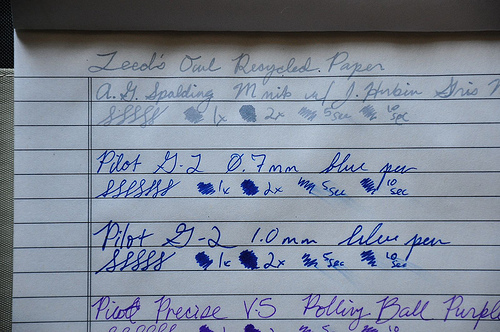 Leed's Owl Recycled Paper
A.G. Spalding M nib w/ J. Herbin Gris N
SSSSSS 1x 2x 5 sec 10 sec
Pilot G-2 0.7mm blue pen
SSSSSSS 1x 2x 5 sec 10 sec
Pilot G-2 1.0mm blue pen
SSSSSS 1x 2x 5 sec 10 sec
Pilot Precise V.5 Rolling Ball Purpl